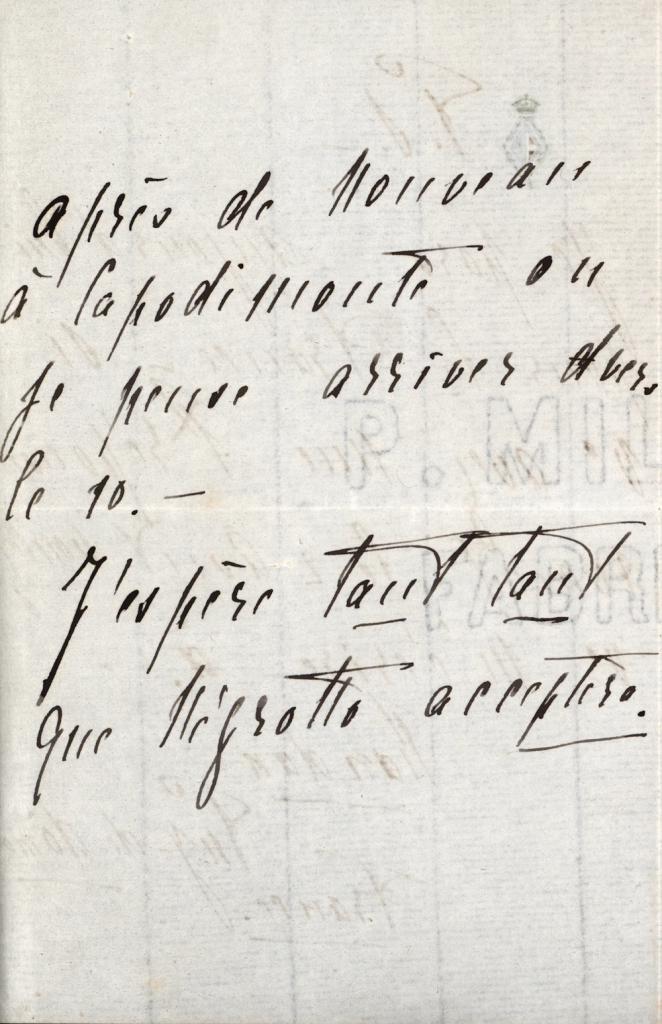 après de nouveau
à Capodimonte ou
je pense arriver vers
le 10. —
J'espère tant tant
que Négrotto acceptera.